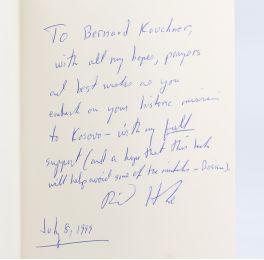 To Bernard Kouchner,
with all my hopes, prayers
and best wishes as you
embark on your historic mission
to Kosovo – with my full
support (and a hope that this book
will help avoid some of the mistakes – Bosnia).
July 8, 1999